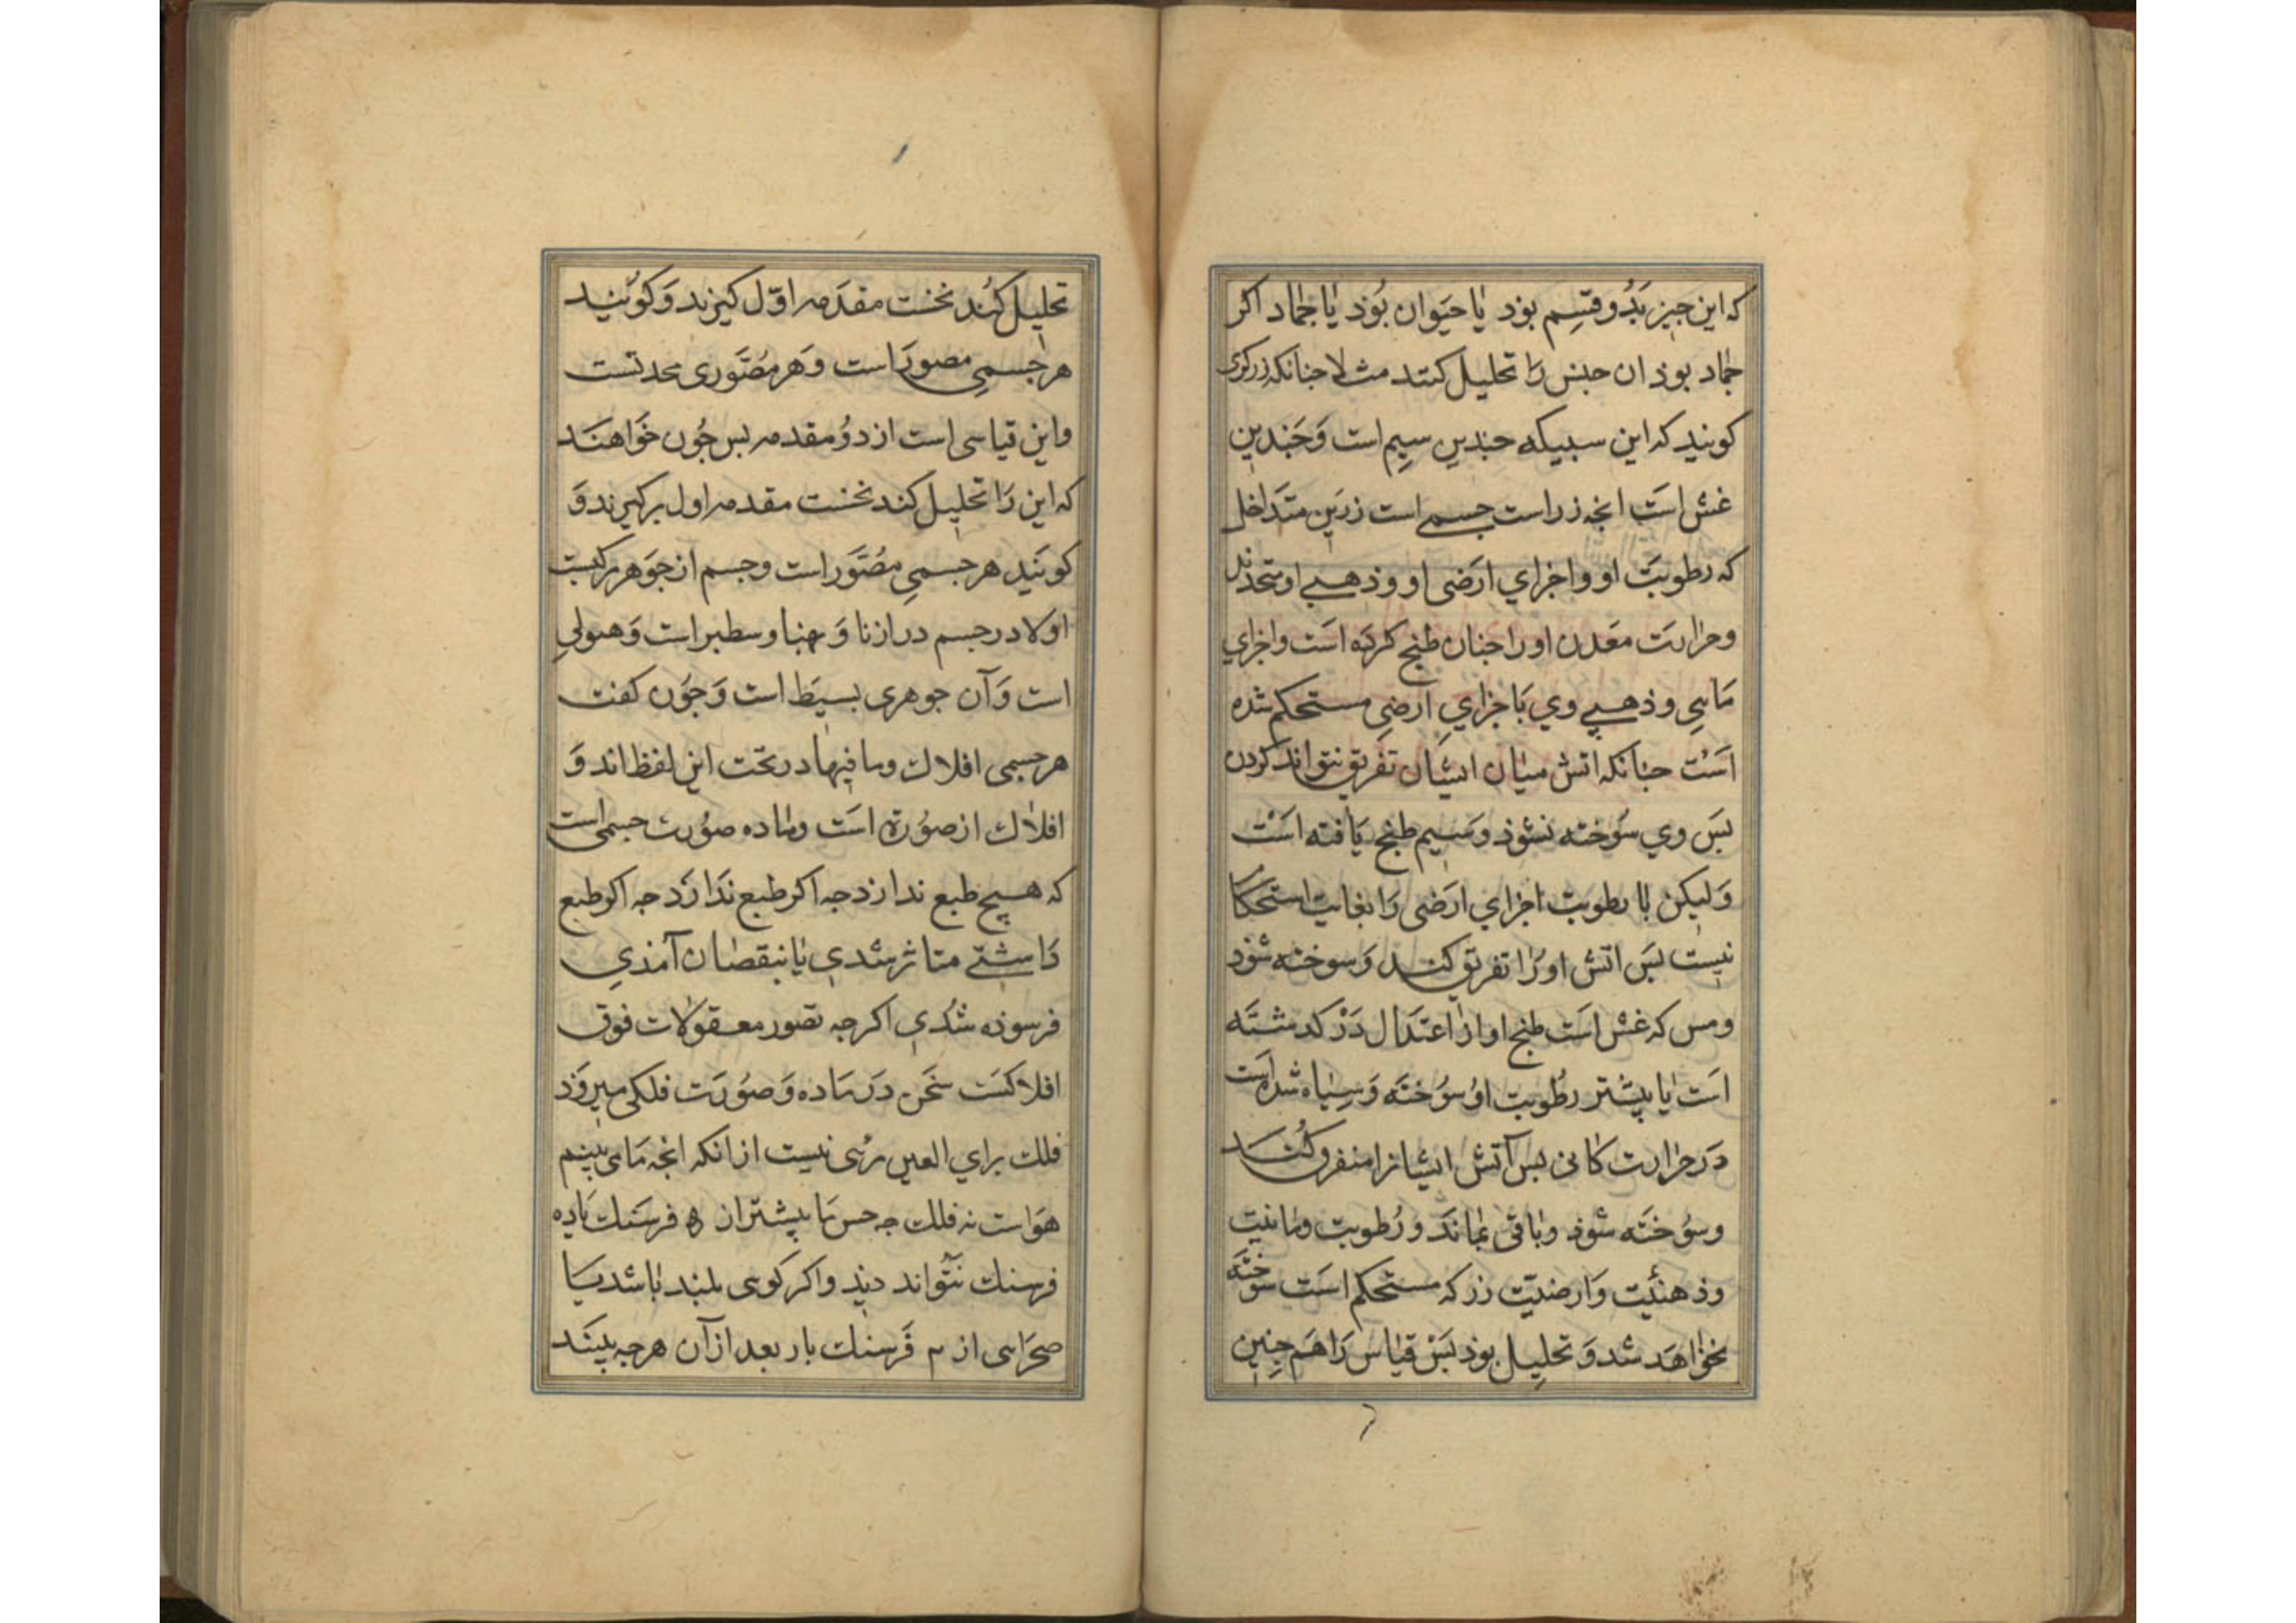 که این جیز بدو قسم بوذ یا حیوان بوذ یا جماد اکر
جماد بوذ ان جنس را تحلیل کنند مثلا جنانکه زرکری
کویند که این سبیکه جندین سیم است و جندین
غش است انجه زر است جسمی است زرین متداخل
که رطوبت او و اجزاي ارضی او و ذهبے او متحد
و حرارت معدن او را جنان طبخ کرده است و اجزاي
مایی و ذهبے وي با جزاي ارضی مستحکم شده
است جنانکه اتش میان ایشان تفریق نتواند کردن
بس وي سوخته نشوذ و سیم طبخ یافته است
ولیکن با رطوبت اجزاي ارضی را بغایت استحکام
نیست بس اتش او را تفریق کند و سوخته شوذ
و مس که غش است طبخ او از اعتدال در کدشته
است یا بیشتر رطوبت او سوخته و سیاه شده است
در حرارت کانی بس آتش ایشانرا متفرق کند
و سوخته شوذ و باقی نماند و رطوبت و مائیت
و ذهنیت و ارضیت زر که مستحکم است سوخته
نخواهد شد و تحلیل بوذ بس قیاس را هم جنین
تحلیل کنند نخست مقدمه اول کیرند و کویند
هر جسمی مصور است و هر مصوری محدثست
و این قیاسی است از دو مقدمه بس جون خواهند
که این را تحلیل کند نخست مقدمه اول برکیرند و
کویند هر جسمی مصور است و جسم از جوهر مرکبست
اولا در جسم درازنا و بهنا و سطبر است و هیولی
است و آن جوهری بسیط است و جون کفت
هر جسمی افلاك و ما فیها در تحت این لفظ اند و
افلاك از صورة است و ماده صورت جسمی است
که هیچ طبع ندارد جه اکر طبع ندارد جه اکر طبع
داشتے متاثر شدی یا بنقصان آمذي
فرسوذه شدی اکر جه تصور معقولات فوق
افلاکست سخن در ماده و صورت فلکی میروذ
فلك براي العین مرئی نیست از انکه انجه ما می بینیم
هواست نه فلك جه حس ما بیشتر از ۵ فرسنك یا ده
فرسنك نتواند دید و اکر کوهی بلند باشد یا
صحرایی از ۳ فرسنك بار بعد از آن هر جه بیند